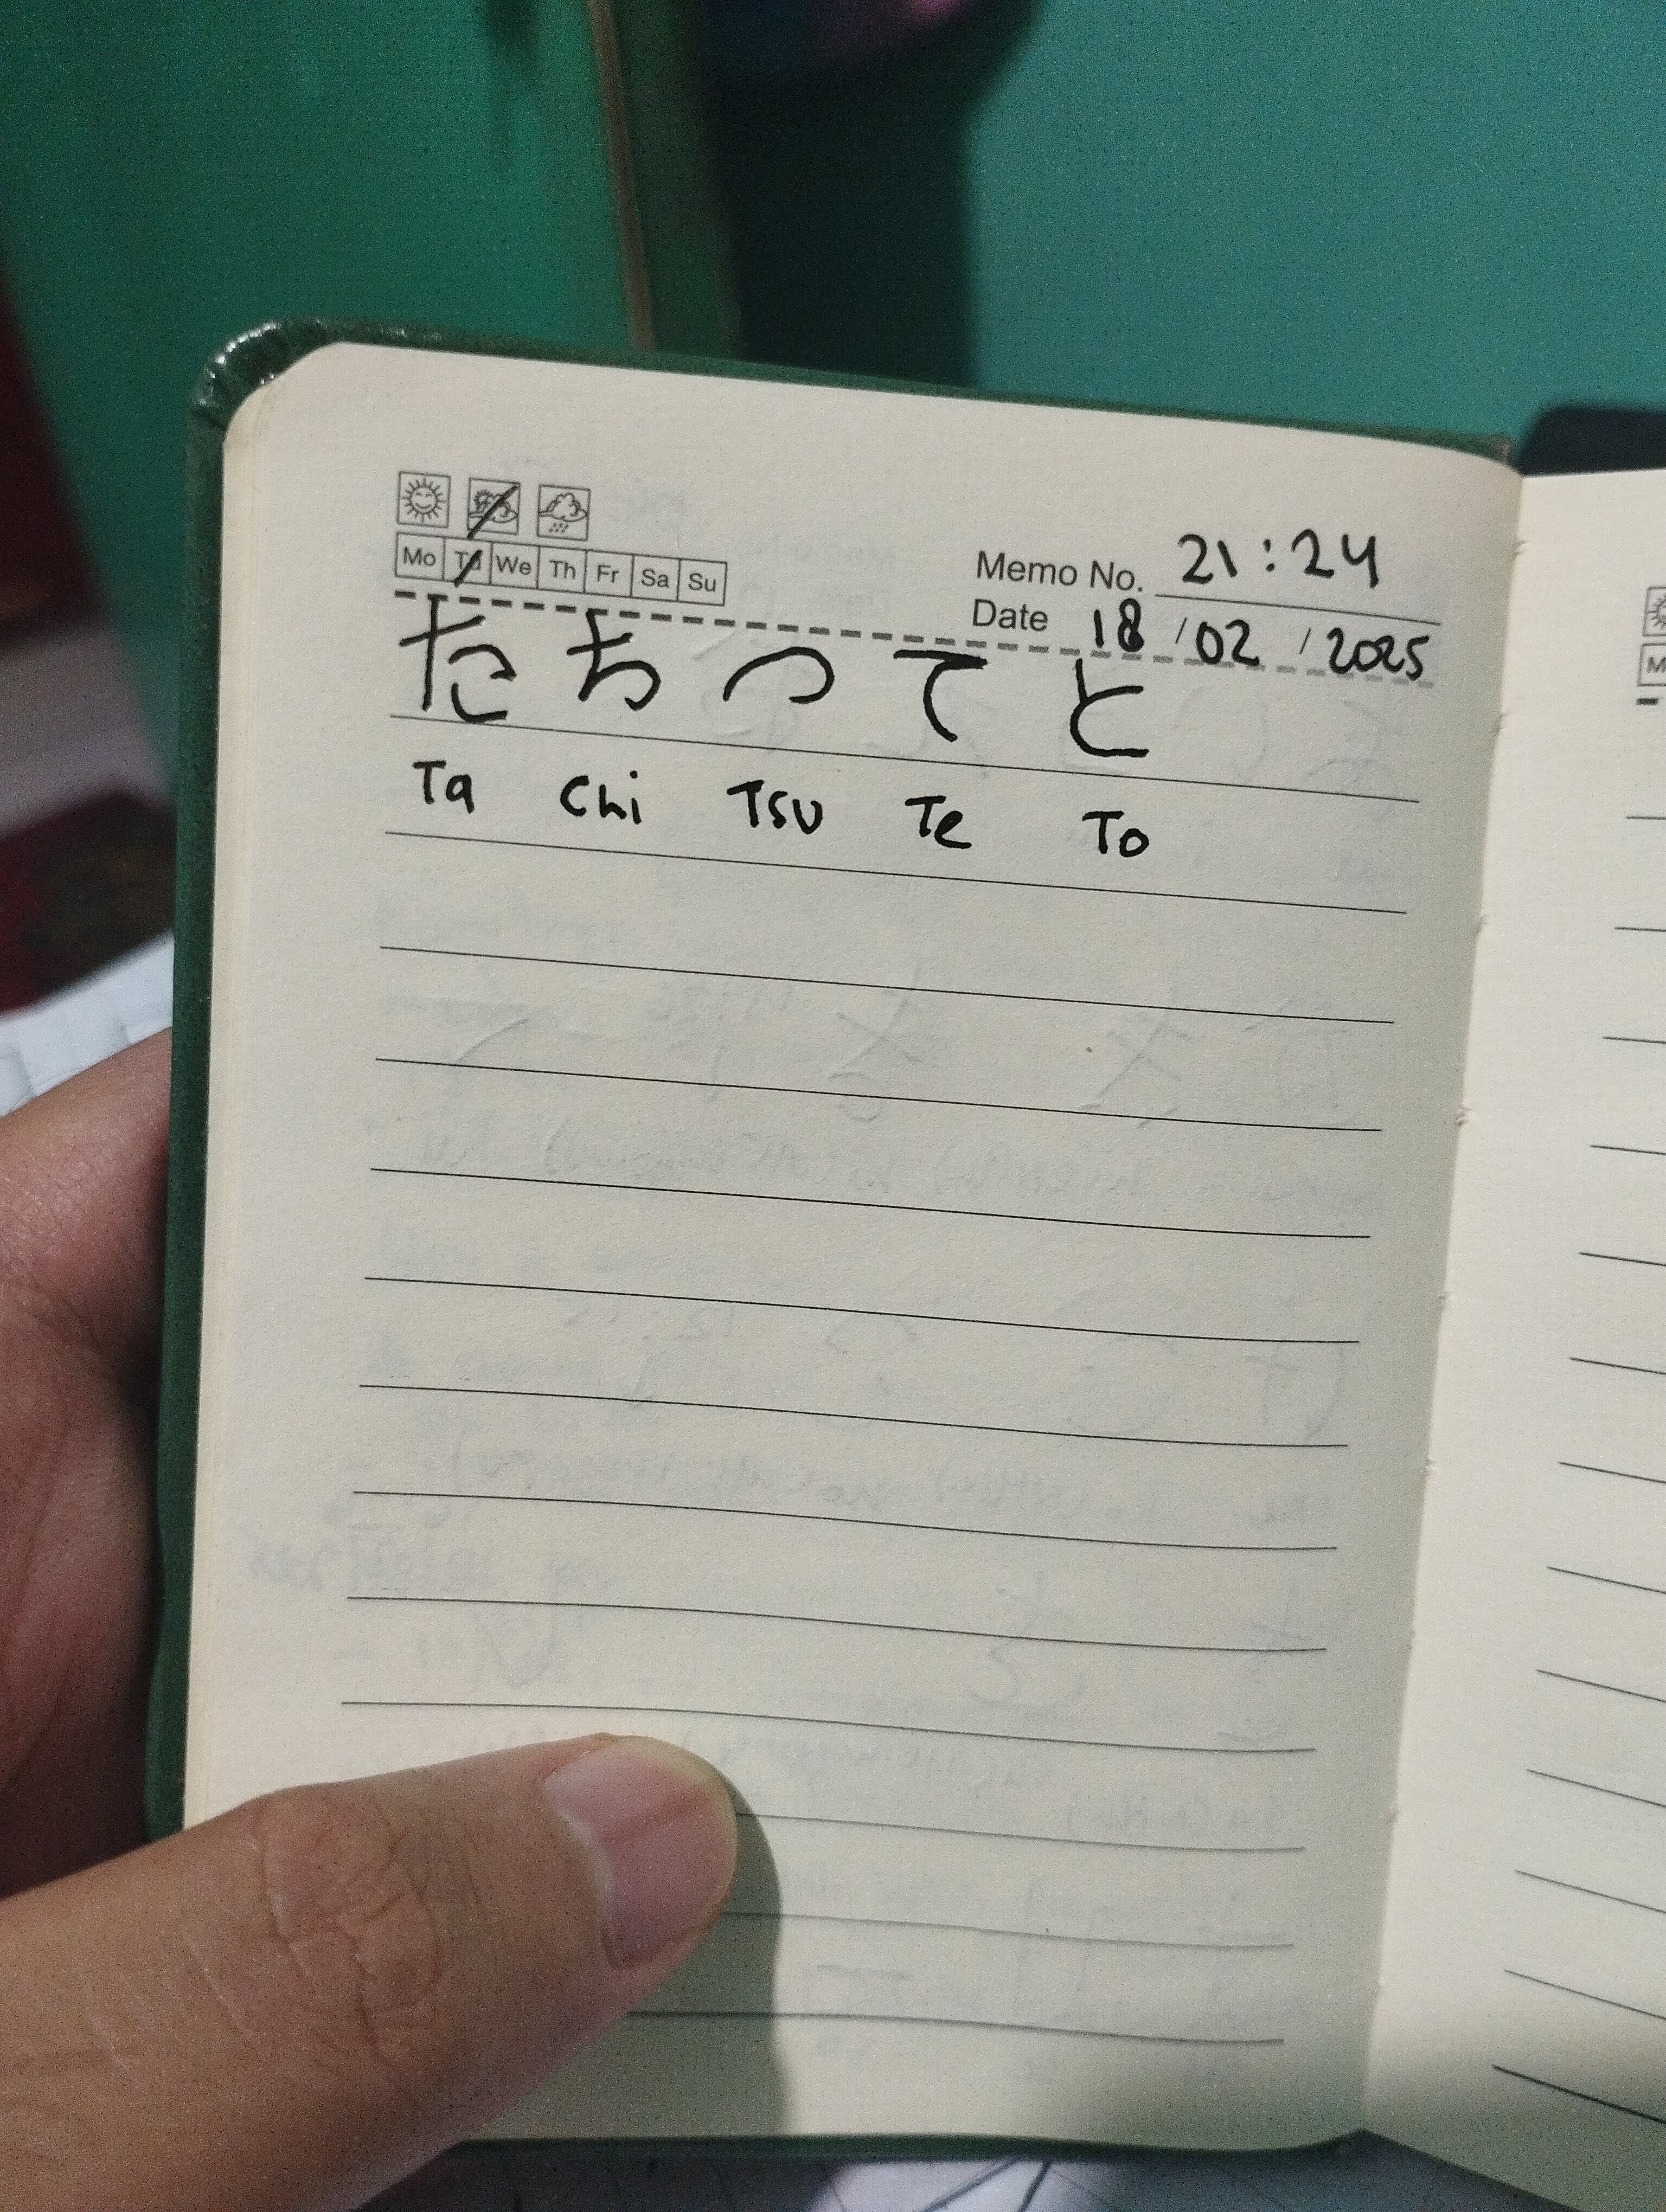 Mo Tu We Th Fr Sa Su
Memo No. 21:24
Date 18/02/2025
たちつてと
Ta Chi Tsu Te To